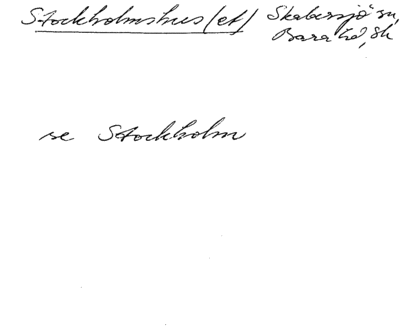 Stockholmshus (et) Skabersjö sn,
Bara hd, Sk
se Stockholm